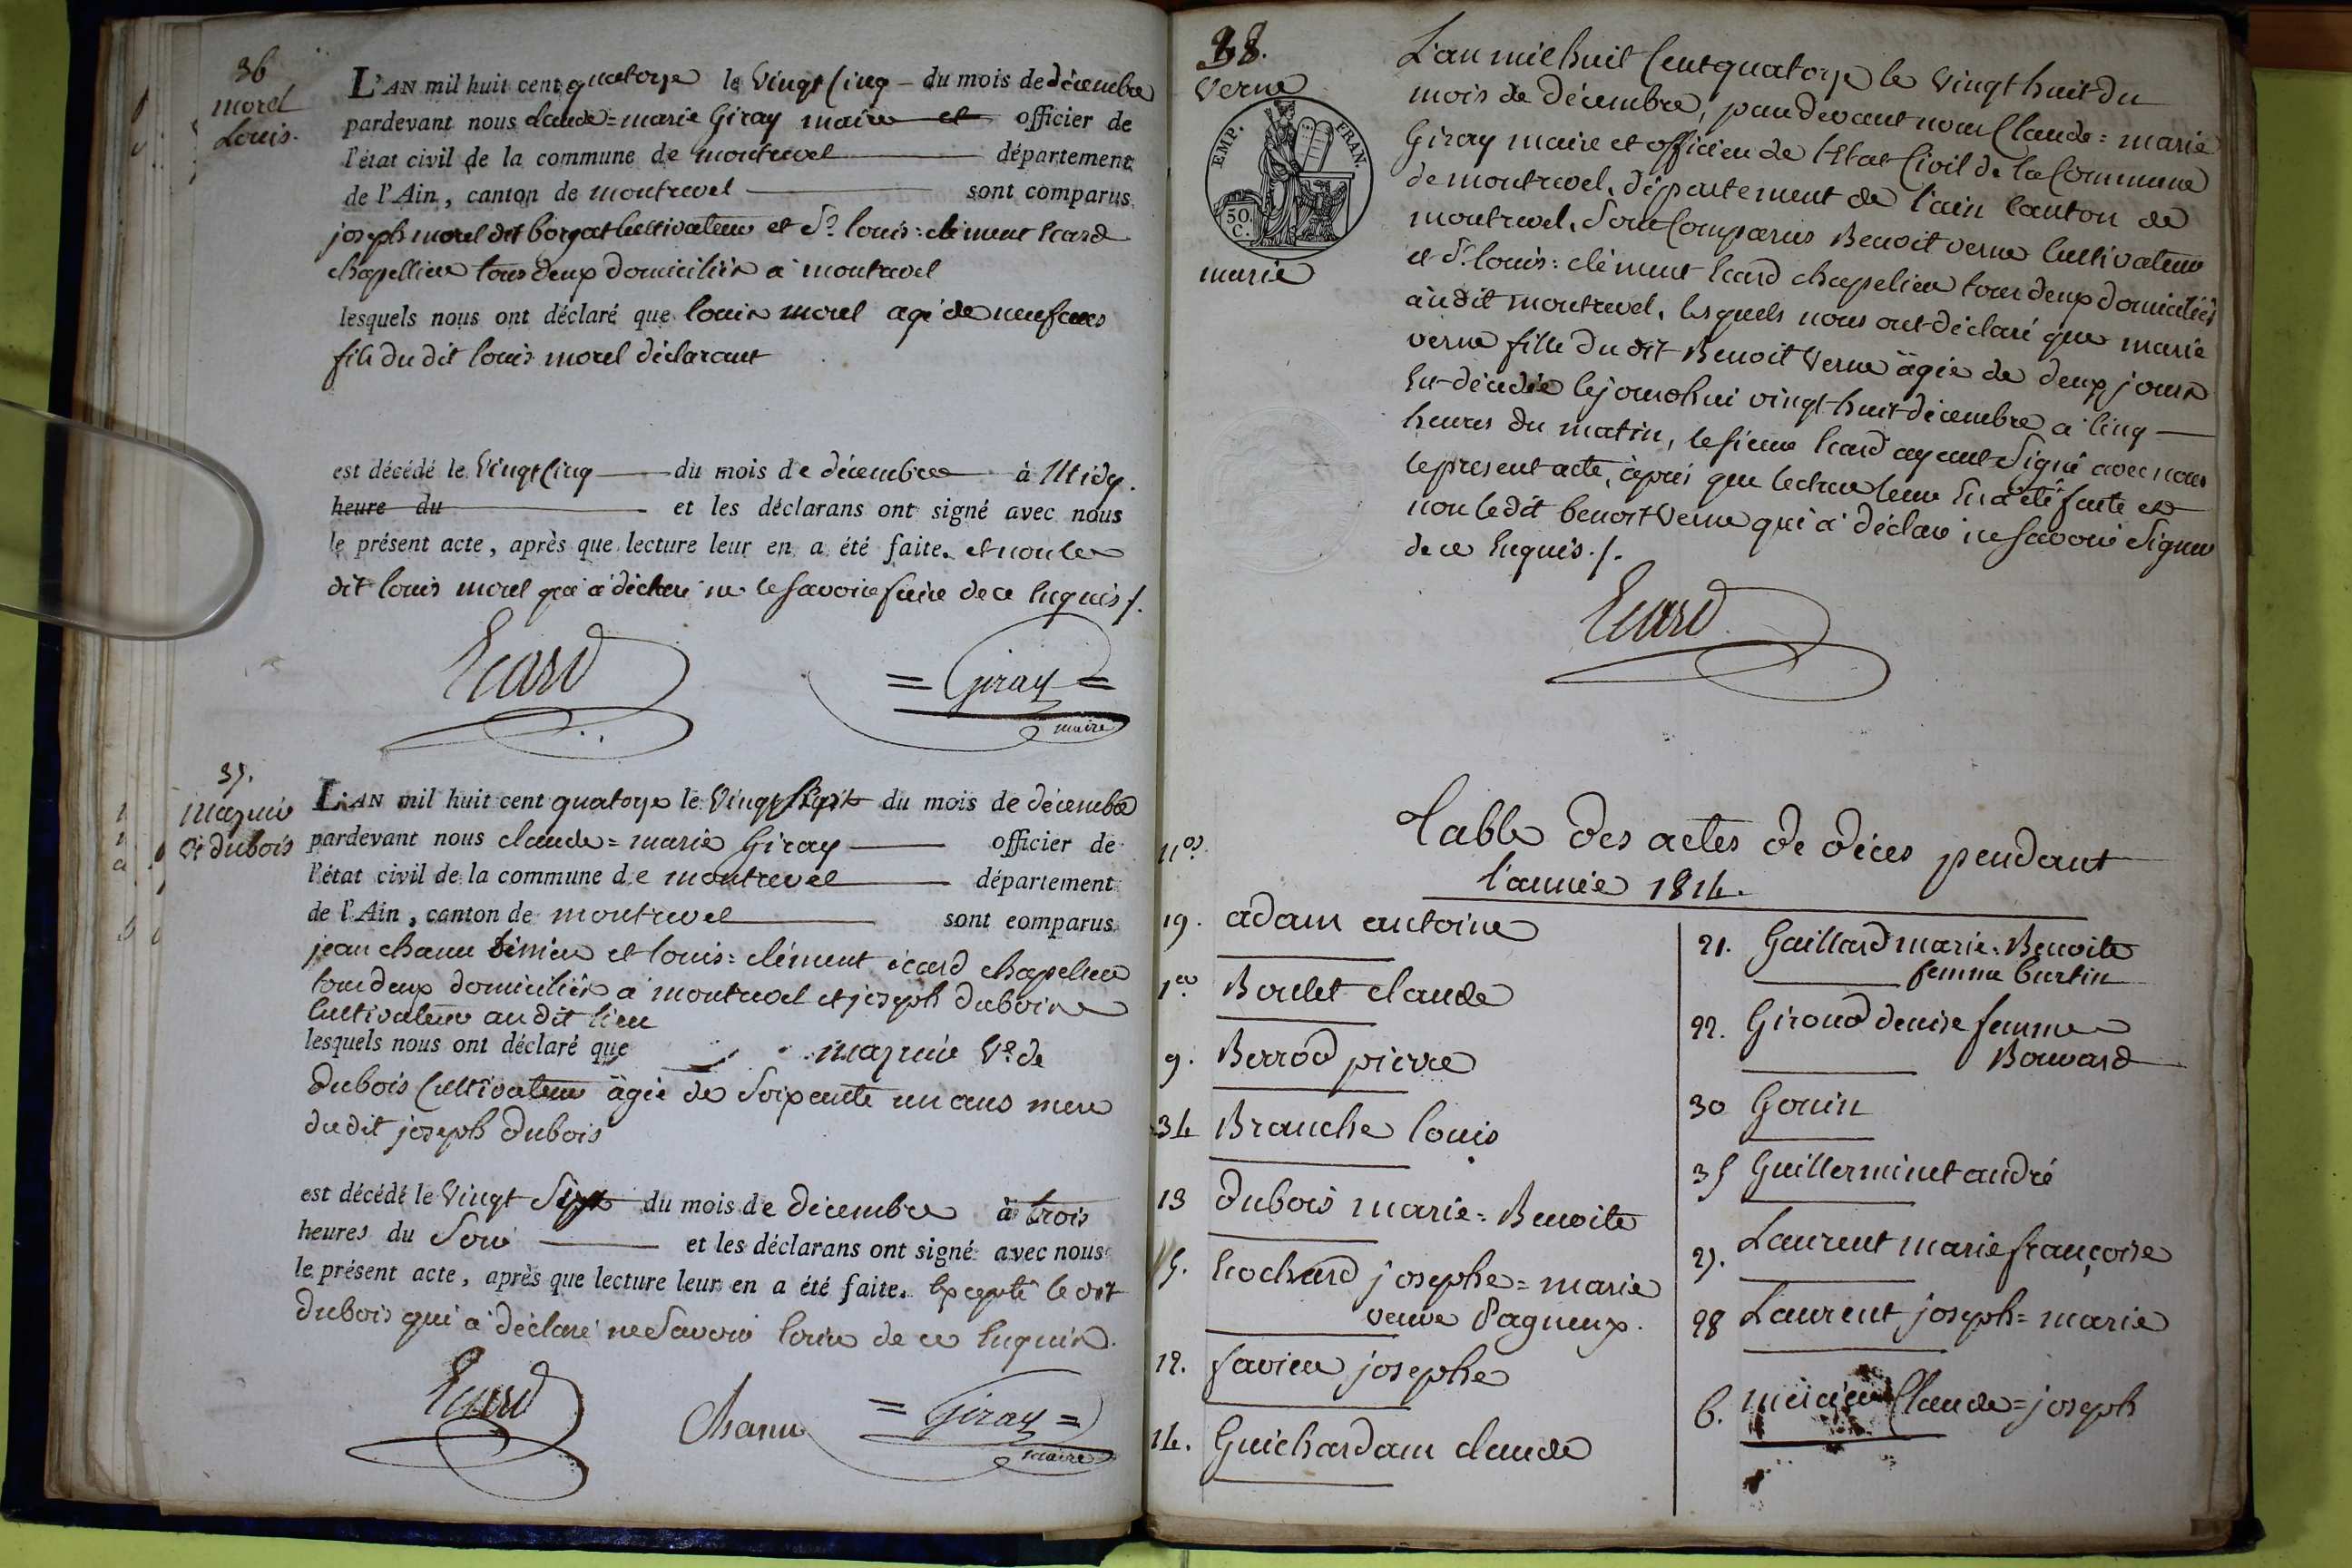 36
morel
Louis.
L'AN mil huit cent quatorze le vingt cinq du mois de décembre
pardevant nous claude=marie Giray maire et officier de
l'état civil de la commune de montrevel département
de l'Ain, canton de montrevel sont comparus
joseph morel dit borgat cultivateur et Sr. louis=clément Ecard
chapellier tous deux domiciliés a montrevel
lesquels nous ont déclaré que louis morel agé de neuf
fils du dit louis morel déclarant
est décédé le vingt cinq du mois de décembre à Midy.
heure du et les déclarans ont signé avec nous
le présent acte, après que lecture leur en a été faite. et non le
dit louis morel qui a déclaré ne le savoir faire de ce Enquis ./.
Ecard
= Giray =
maire
37.
Mazuir
Ve dubois
L'AN mil huit cent quatorze le vingt Sept du mois de décembre
pardevant nous claude=marie Giray officier de
l'état civil de la commune de montrevel département
de l'Ain, canton de montrevel sont comparus
jean chanu et louis=clément écard chapelier
tous deux domiciliés a montrevel et joseph dubois
Cultivateur au dit lieu
lesquels nous ont déclaré que mazuir Ve de
dubois Cultivateur âgée de Soixante un ans mere
du dit joseph dubois
est décédé le vingt Sept du mois de décembre à trois
heures du Soir et les déclarans ont signé avec nous
le présent acte, après que lecture leur en a été faite. Excepté le dit
dubois qui a déclaré ne Savoir de ce Enquis.
Ecard
Chanu
= Giray =
maire
38.
Verne
EMP. FRAN.
50.
C.
marie
L'an mil huit Cent quatorze le vingt huit du
mois de décembre, pardevant nous Claude=marie
Giray maire et officier de l'Etat Civil de la Commune
de montrevel, département de l'ain Canton de
montrevel, Sont Comparus Benoit verne Cultivateur
et Sr. louis=clément Ecard chapelier tous deux domiciliés
au dit montrevel, lesquels nous ont déclaré que marie
verne fille du dit Benoit Verne âgée de deux jours
Est décedée cejourdhui vingt huit décembre a Cinq
heures du matin, le sieur Ecard ayant Signé avec nous
le present acte, après que lecture leur En a été faite et
non le dit benoit Verne qui a déclaré ne Savoir Signer
de ce Enquis ./.
Ecard
Table des actes de décès pendant
l'année 1814.
nos.
19. adam antoine
1er. Boulet claude
9. Berrod pierre
34 Branche louis
13 dubois marie=Benoite
15. Ecochard josephe=marie
veuve Pagneux.
12. favier josephe
14. Guichardam claude
21. Gaillard marie=Benoite
femme Curtin
22. Giroud denise femme
Bouvard
30 Gonin
35 Guillerminet andré
27. Laurent marie françoise
28 Laurent joseph=marie
6. mercier Claude=joseph